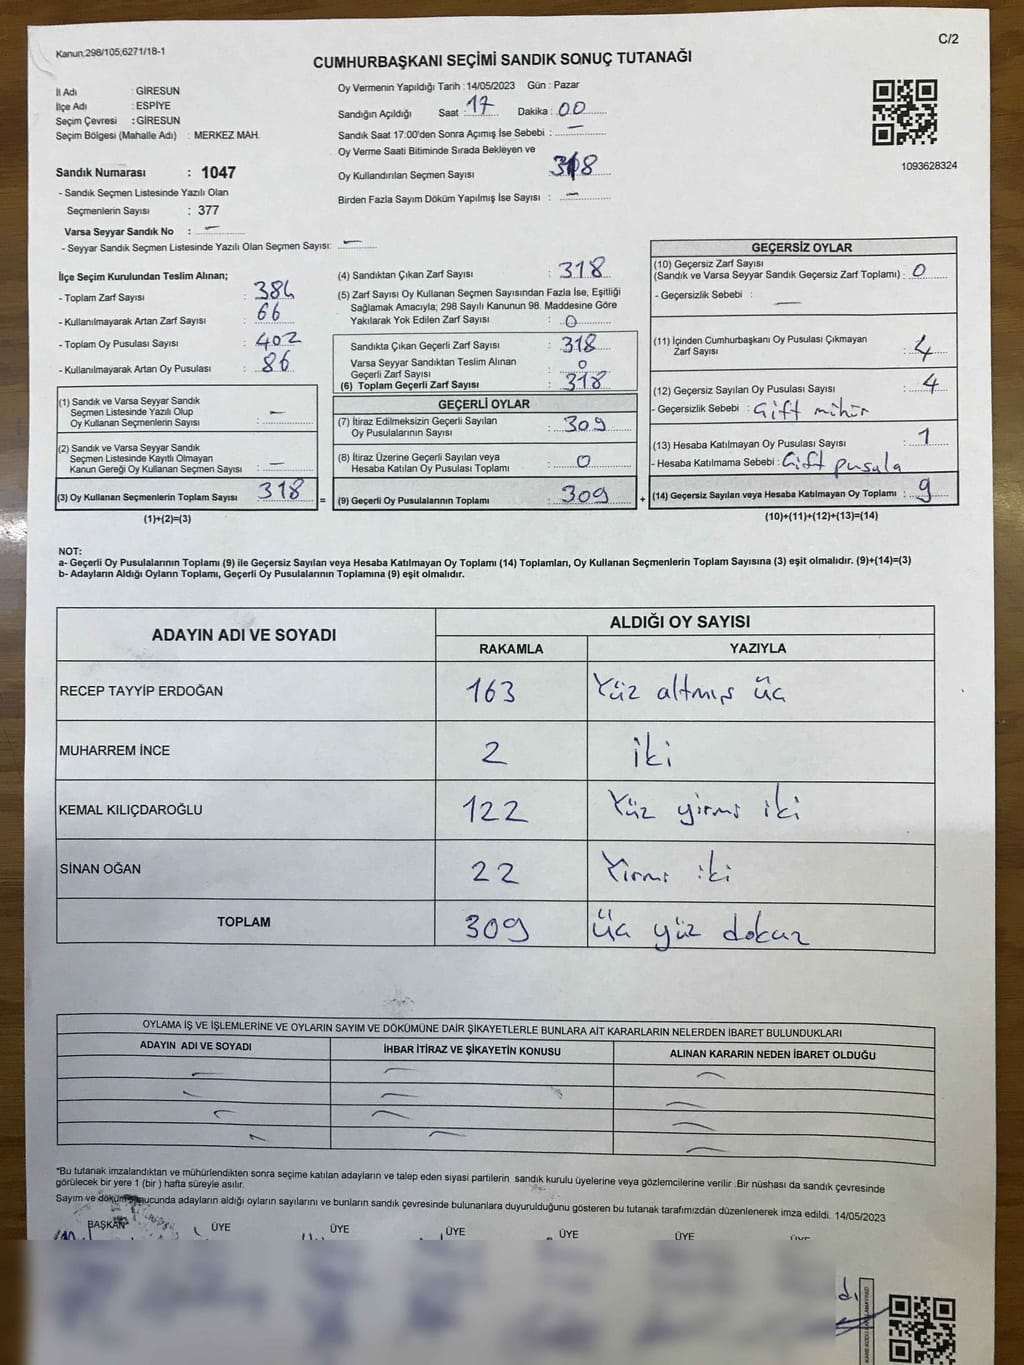 Kanun;298/105,6271/18-1
C/2
CUMHURBAŞKANI SEÇİMİ SANDIK SONUÇ TUTANAĞI
İl Adı : GİRESUN
İlçe Adı : ESPİYE
Seçim Çevresi : GİRESUN
Seçim Bölgesi (Mahalle Adı) : MERKEZ MAH.
Sandık Numarası : 1047
- Sandık Seçmen Listesinde Yazılı Olan
Seçmenlerin Sayısı : 377
Varsa Seyyar Sandık No : —
- Seyyar Sandık Seçmen Listesinde Yazılı Olan Seçmen Sayısı: —
Oy Vermenin Yapıldığı Tarih : 14/05/2023 Gün : Pazar
Sandığın Açıldığı Saat 17 Dakika : 00
Sandık Saat 17:00'den Sonra Açımış İse Sebebi : —
Oy Verme Saati Bitiminde Sırada Bekleyen ve
Oy Kullandırılan Seçmen Sayısı 318
Birden Fazla Sayım Döküm Yapılmış İse Sayısı : —
1093628324
İlçe Seçim Kurulundan Teslim Alınan;
- Toplam Zarf Sayısı : 384
- Kullanılmayarak Artan Zarf Sayısı : 66
- Toplam Oy Pusulası Sayısı : 402
- Kullanılmayarak Artan Oy Pusulası : 86
(1) Sandık ve Varsa Seyyar Sandık
Seçmen Listesinde Yazılı Olup
Oy Kullanan Seçmenlerin Sayısı : —
(2) Sandık ve Varsa Seyyar Sandık
Seçmen Listesinde Kayıtlı Olmayan
Kanun Gereği Oy Kullanan Seçmen Sayısı : —
(3) Oy Kullanan Seçmenlerin Toplam Sayısı 318 =
(1)+(2)=(3)
(4) Sandıktan Çıkan Zarf Sayısı : 318
(5) Zarf Sayısı Oy Kullanan Seçmen Sayısından Fazla İse, Eşitliği
Sağlamak Amacıyla; 298 Sayılı Kanunun 98. Maddesine Göre
Yakılarak Yok Edilen Zarf Sayısı : 0
Sandıkta Çıkan Geçerli Zarf Sayısı : 318
Varsa Seyyar Sandıktan Teslim Alınan
Geçerli Zarf Sayısı : 0
(6) Toplam Geçerli Zarf Sayısı : 318
GEÇERLİ OYLAR
(7) İtiraz Edilmeksizin Geçerli Sayılan
Oy Pusulalarının Sayısı : 309
(8) İtiraz Üzerine Geçerli Sayılan veya
Hesaba Katılan Oy Pusulası Toplamı : 0
(9) Geçerli Oy Pusulalarının Toplamı : 309 +
GEÇERSİZ OYLAR
(10) Geçersiz Zarf Sayısı
(Sandık ve Varsa Seyyar Sandık Geçersiz Zarf Toplamı) : 0
- Geçersizlik Sebebi : —
(11) İçinden Cumhurbaşkanı Oy Pusulası Çıkmayan
Zarf Sayısı : 4
(12) Geçersiz Sayılan Oy Pusulası Sayısı : 4
- Geçersizlik Sebebi : Çift mühür
(13) Hesaba Katılmayan Oy Pusulası Sayısı : 1
- Hesaba Katılmama Sebebi : Çift pusula
(14) Geçersiz Sayılan veya Hesaba Katılmayan Oy Toplamı : 9
(10)+(11)+(12)+(13)=(14)
NOT:
a- Geçerli Oy Pusulalarının Toplamı (9) ile Geçersiz Sayılan veya Hesaba Katılmayan Oy Toplamı (14) Toplamları, Oy Kullanan Seçmenlerin Toplam Sayısına (3) eşit olmalıdır. (9)+(14)=(3)
b- Adayların Aldığı Oyların Toplamı, Geçerli Oy Pusulalarının Toplamına (9) eşit olmalıdır.
ADAYIN ADI VE SOYADI ALDIĞI OY SAYISI
RAKAMLA YAZIYLA
RECEP TAYYİP ERDOĞAN 163 Yüz altmış üç
MUHARREM İNCE 2 iki
KEMAL KILIÇDAROĞLU 122 Yüz yirmi iki
SİNAN OĞAN 22 Yirmi iki
TOPLAM 309 Üç yüz dokuz
OYLAMA İŞ VE İŞLEMLERİNE VE OYLARIN SAYIM VE DÖKÜMÜNE DAİR ŞİKAYETLERLE BUNLARA AİT KARARLARIN NELERDEN İBARET BULUNDUKLARI
ADAYIN ADI VE SOYADI İHBAR İTİRAZ VE ŞİKAYETİN KONUSU ALINAN KARARIN NEDEN İBARET OLDUĞU
*Bu tutanak imzalandıktan ve mühürlendikten sonra seçime katılan adayların ve talep eden siyasi partilerin sandık kurulu üyelerine veya gözlemcilerine verilir .Bir nüshası da sandık çevresinde
görülecek bir yere 1 (bir ) hafta süreyle asılır.
Sayım ve döküm sonucunda adayların aldığı oyların sayılarını ve bunların sandık çevresinde bulunanlara duyurulduğunu gösteren bu tutanak tarafımızdan düzenlenerek imza edildi. 14/05/2023
BAŞKAN ÜYE ÜYE ÜYE ÜYE ÜYE ÜYE